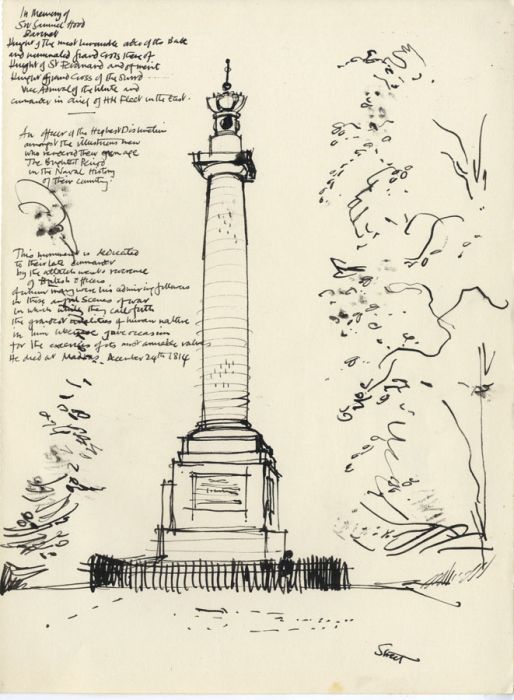 In Memory of
Sir Samuel Hood
Baronet
Knight of the most honourable order of the Bath
and nominated Grand Cross thereof
Knight of St Ferdinand and of merit
Knight Grand Cross of the Sword
Vice Admiral of the White and
commander in chief of HM Fleet in the East.
An officer of the Highest Distinction
amongst the illustrious men
who rendered their own age
The Brightest Period
in the Naval History
of their country
This monument is dedicated
to their late commander
by the attachment & reverence
of British Officers
of whom many were his admiring followers
in those awful scenes of war
in which while they call forth
the grandest qualities of human nature
in him likewise gave occasion
for the exercise of its most amiable virtues
He died at Madras December 24th 1814